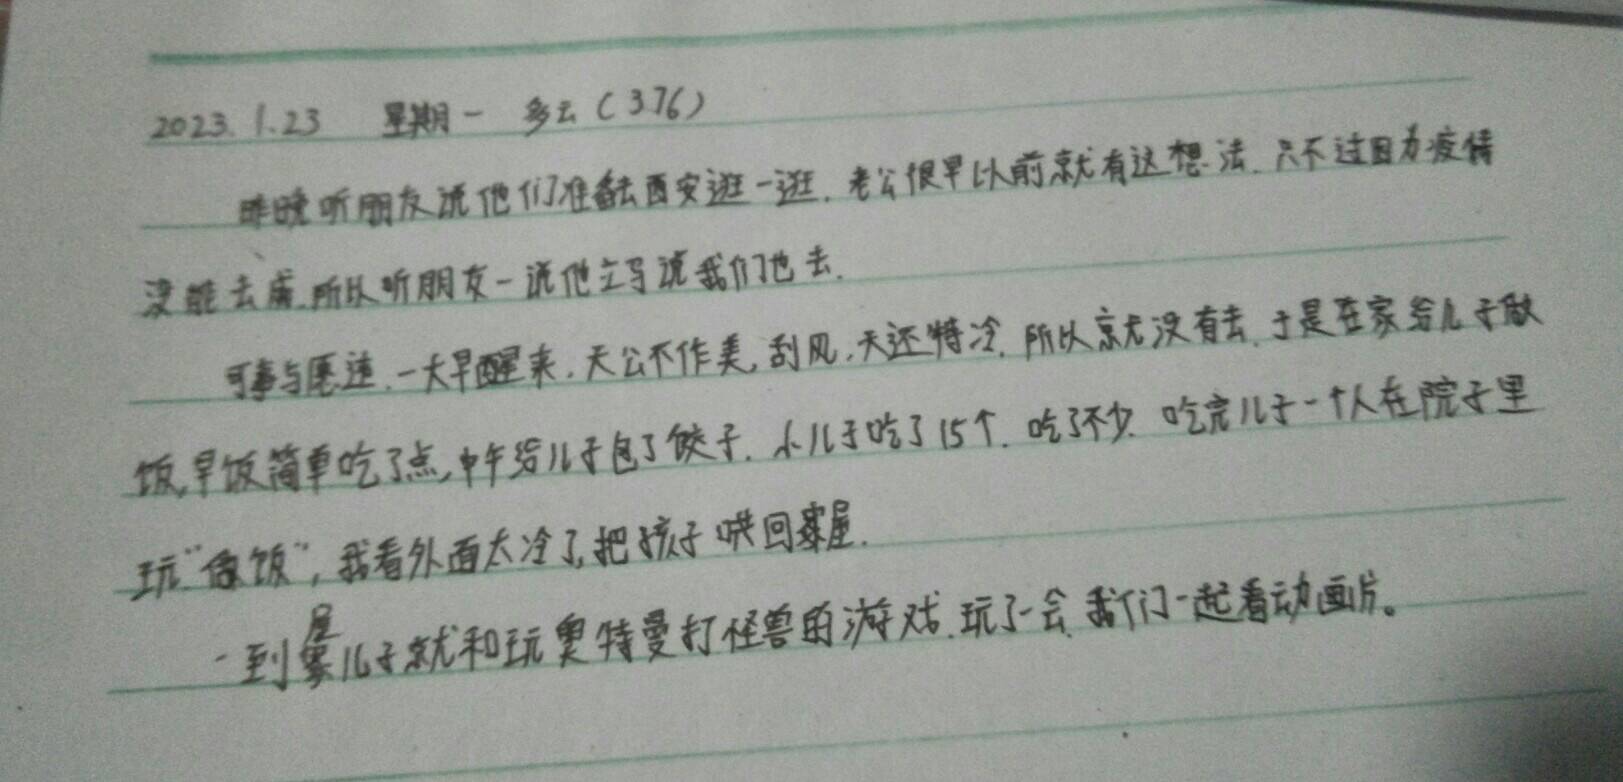 2023.1.23 星期一 多云(376)
昨晚听朋友说他们准备去西安逛一逛.老公很早以前就有这想法.只不过因为疫情
没能去成.所以听朋友一说他立马说我们也去.
可事与愿违.一大早醒来.天公不作美,刮风.天还特冷.所以就没有去.于是在家给儿子做
饭,早饭简单吃了点,中午给儿子包了饺子.小儿子吃了15个.吃了不少.吃完儿子一个人在院子里
玩“做饭”,我看外面太冷了,把孩子哄回屋.
一到屋儿子就和玩奥特曼打怪兽的游戏.玩了一会.我们一起看动画片。